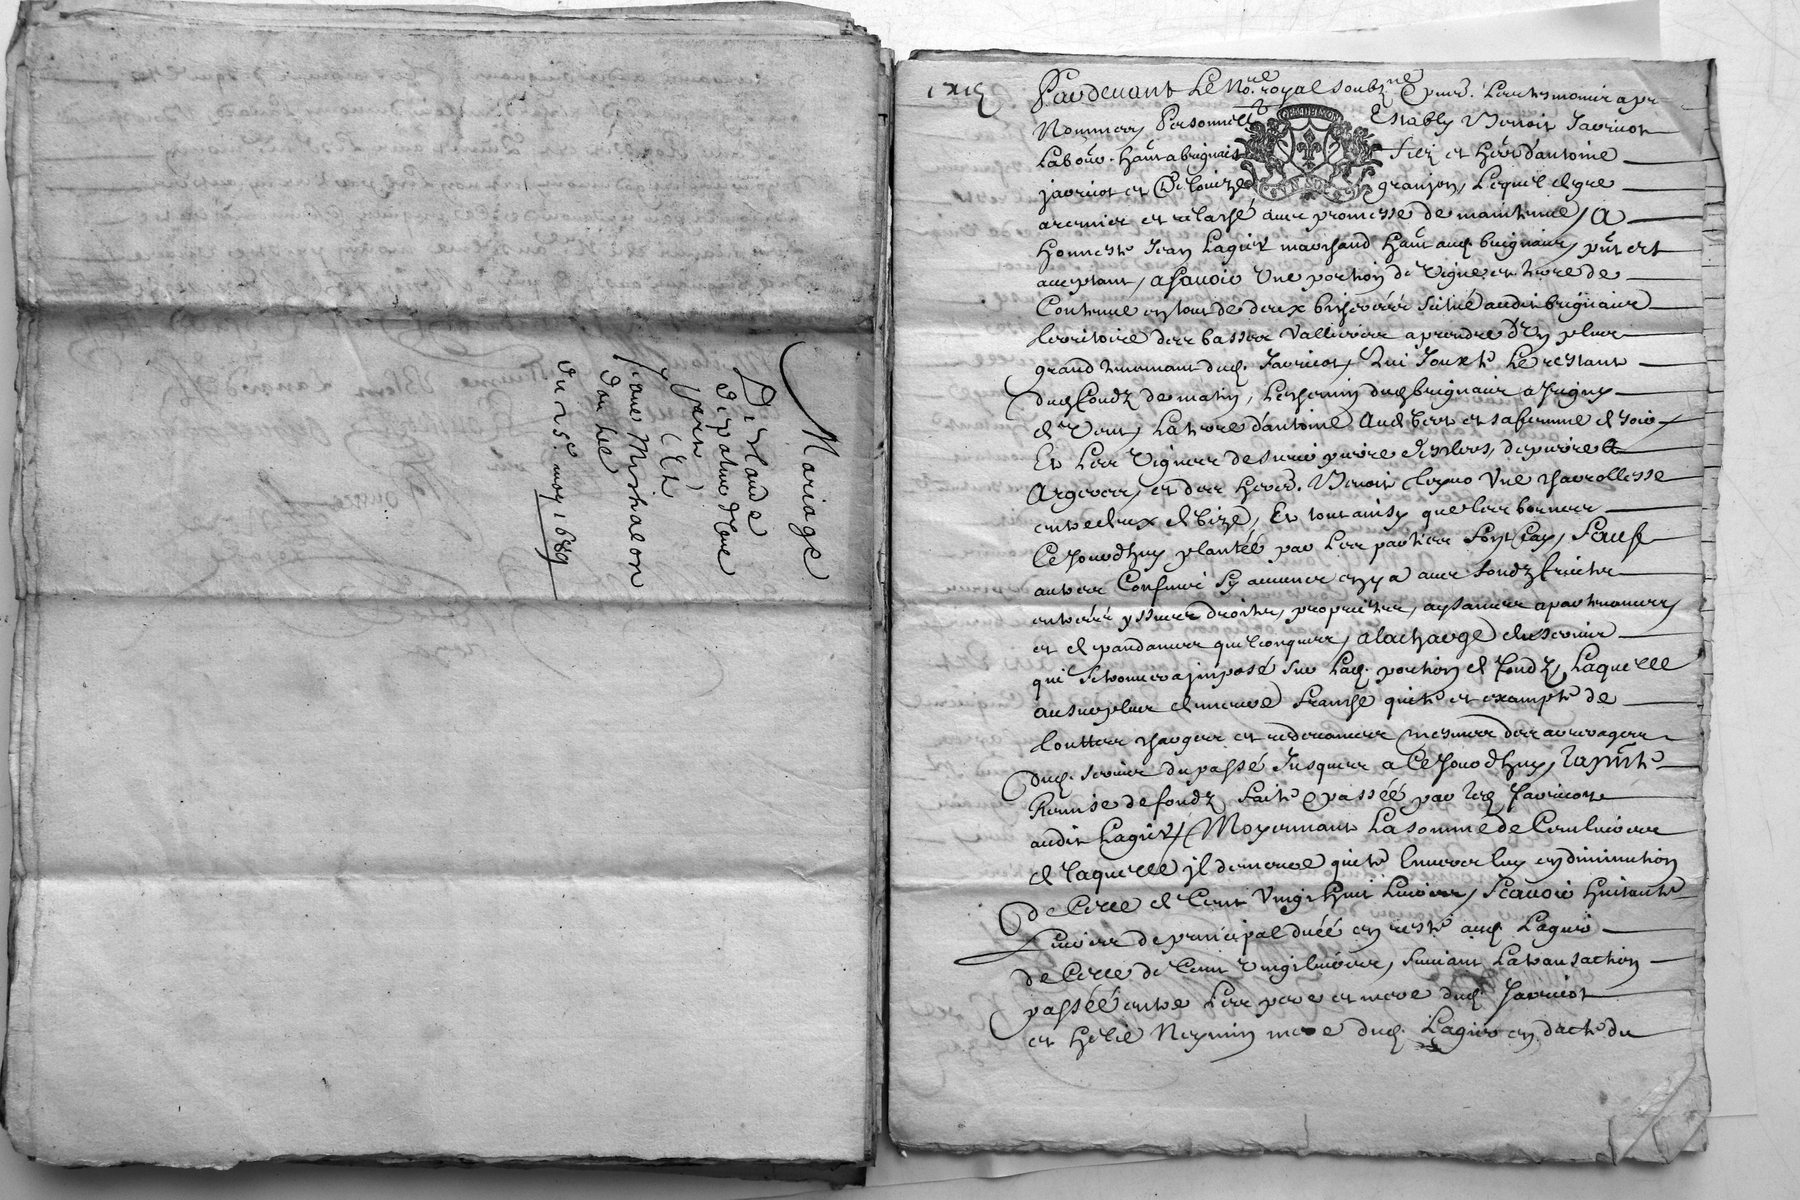 Mariage
De Claude
Depature d'une
part
Et
Jeane Michalon
Dautre
Du 25e may 1689
Pardevant Le No.re royal soubz.ne & pnts. Les tesmoins apr
Nommes Personnell. Estably Benoit Javricot
Labour. Hant a brignais filz et Herr d'antoine
javricot et de Louize granjon, Lequel de gre
a remis et relasché avec promesse de maintenir, A
Honneste Jean Lagier marchand Hant aud. brignais, pnt et
acceptant, ascavoir Une portion de Vigne et terre de
Contenue en tout de deux bicherées situé audit brignais
territoire des basses Vallieres a prendre d'un plus
grand tenemant dud. Javricot, Qui Jouxte Le restant
dud. fondz de matin, Le chemin dud. brignais a Irigny
de Vent, La terre d'antoine Audibert et sa femme de soir
Et Les Vignes de sieur pierre
et des Heers. Benoit Une
entre deux de bize, Et tout ainsy que Les bornes
Cejourdhuy plantée par Les parties sauf
autres Confins sy aucuns en y a avec fondz fruicts
entrées yssues droits, proprietes, aysances apartenances
et despandances quelconques, a la charge du servis
qui se trouvera jmposé sur Lad. portion de fondz, Laquelle
au surplus demeure franche quitte et exampte de
touttes charges et redevances mesmes des arrerages
dud. servis du passé Jusques a Cejourdhuy, La pnte
Remise de fondz faite & passée par led. Javricot
audit Lagier, Moyennant La somme de Cent livres
de Laquelle il demeure quitte Envers luy en diminution
de Celle de Cent Vingt huit Livres, scavoir huitante
Livres de principal duée en reste aud. Lagier
de Celle de Cent vingt livres, suivant La transaction
passéé entre Les pere et mere dud. Javricot
et Helie Neymin mere dud. Lagier en date du